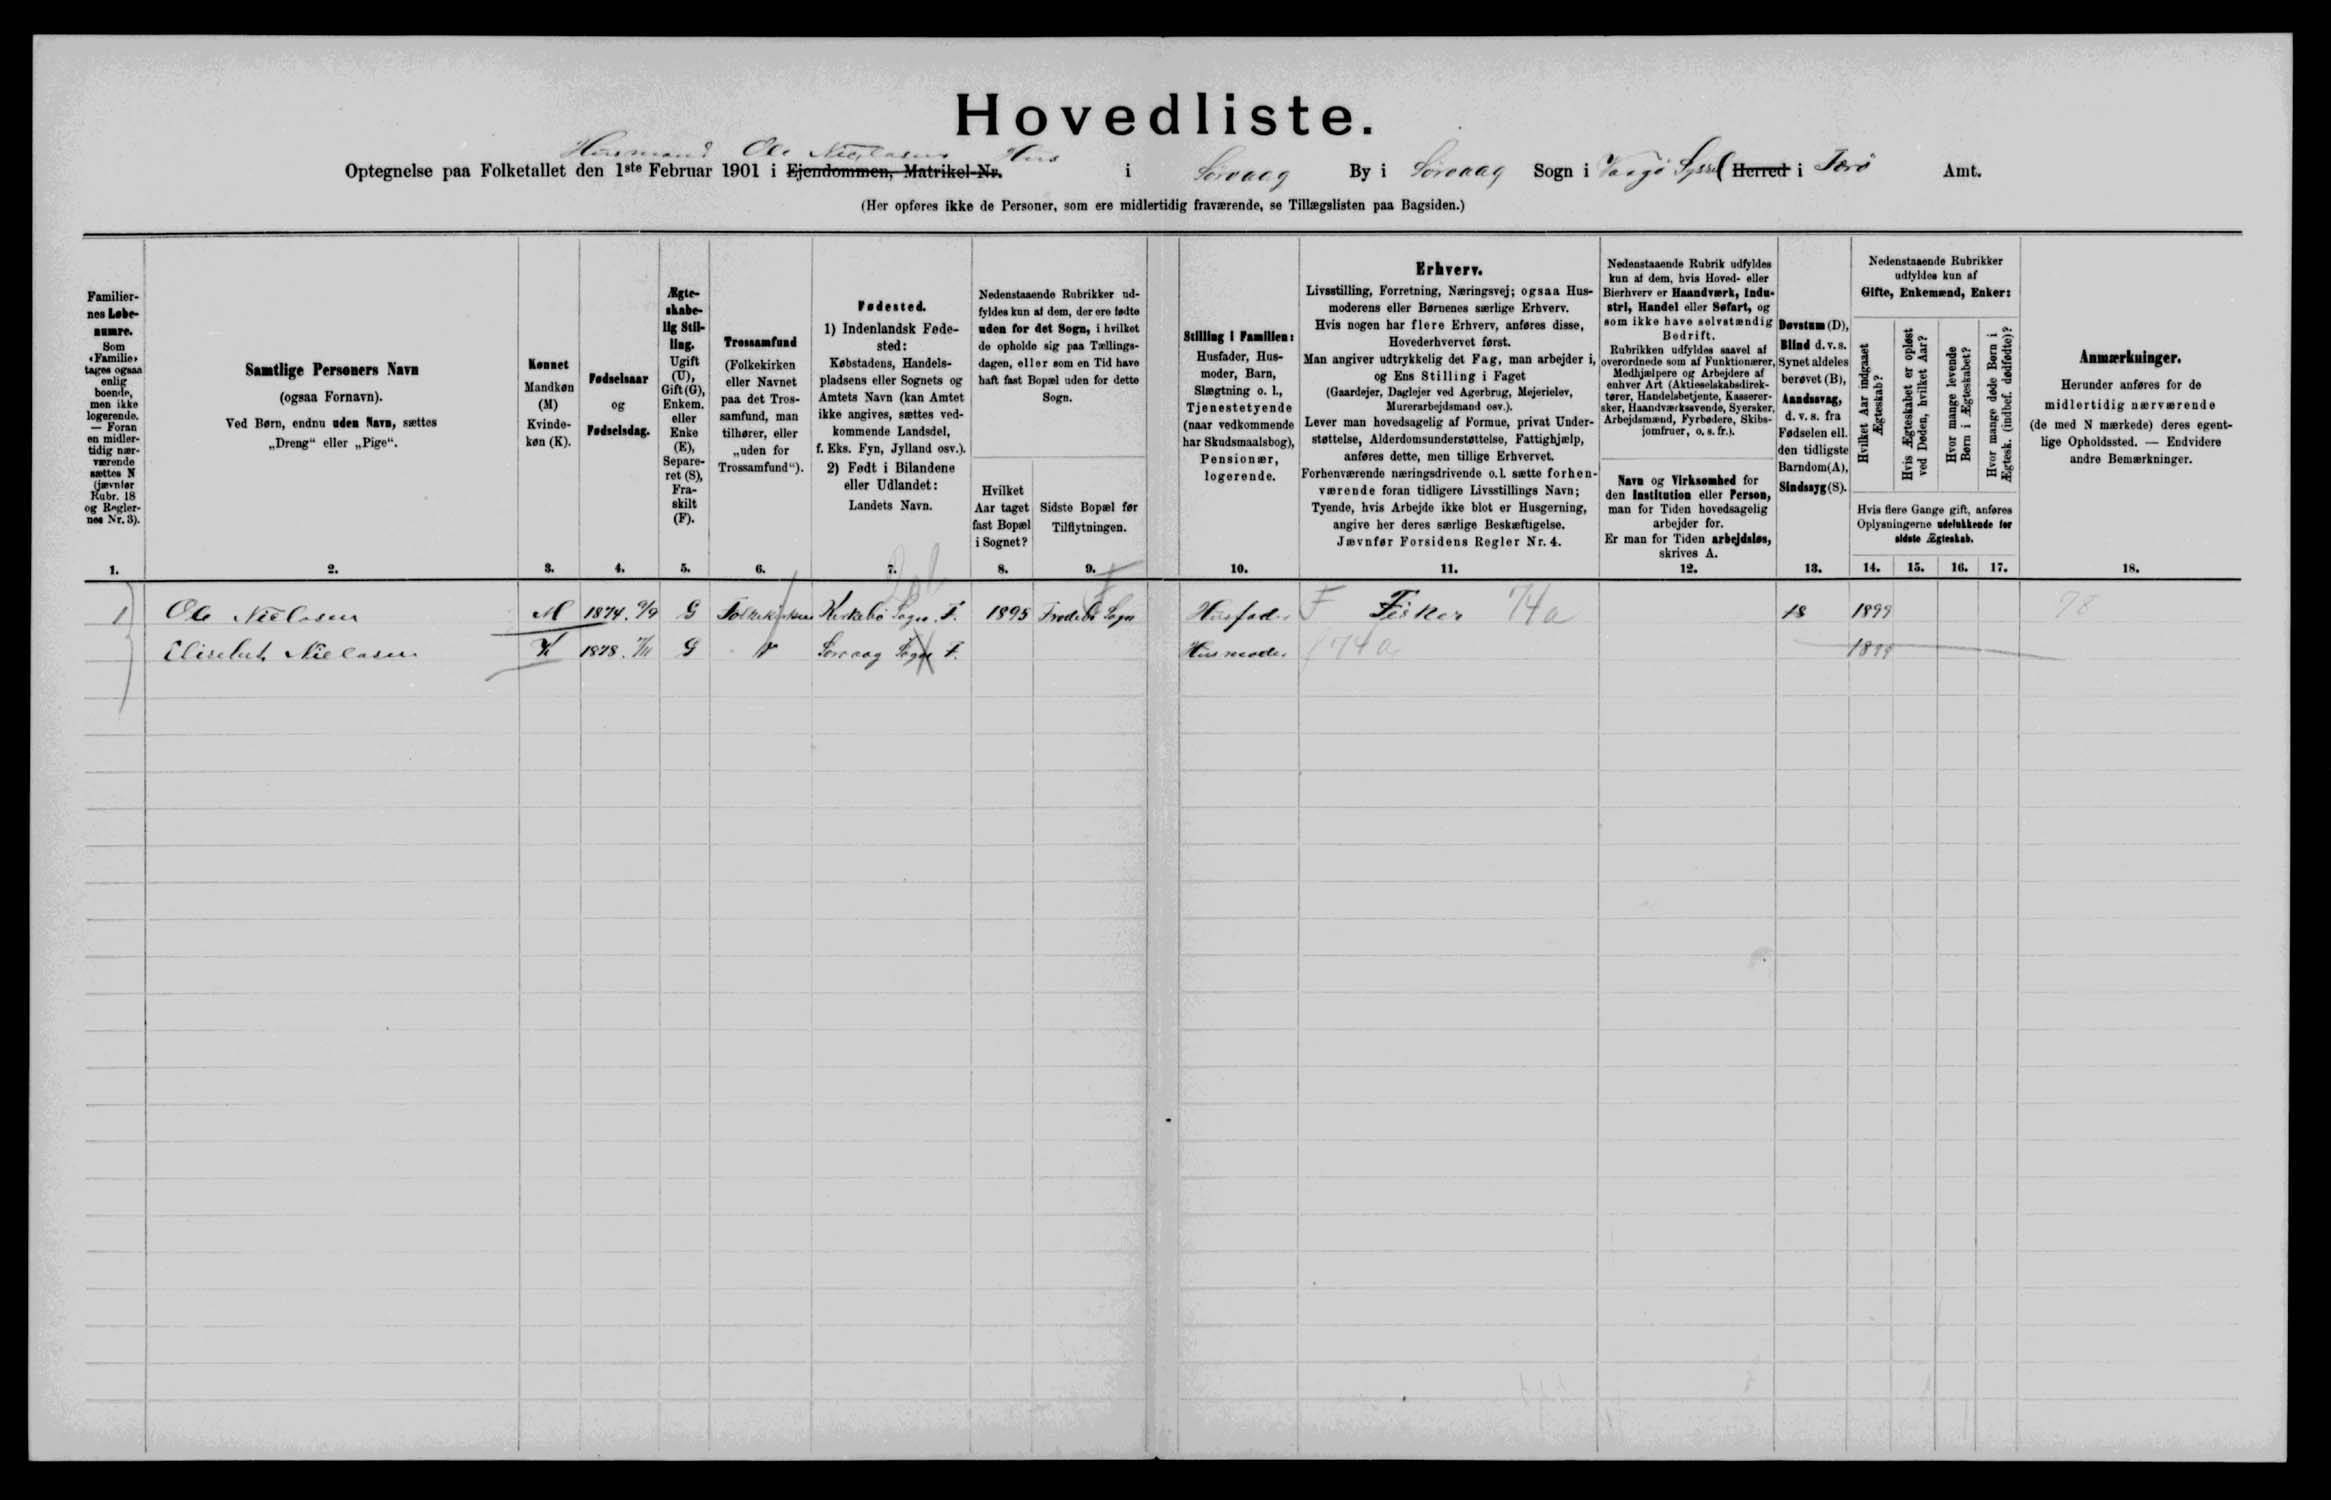 Hovedliste.
Husmand Ole Niclasens Hus
Optegnelse paa Folketallet den 1ste Februar 1901 i Ejendommen, Matrikel-Nr. i Sörvaag By i Sörvaag Sogn i Vaagö Syssel Herred i Færö Amt.
(Her opføres ikke de Personer, som ere midlertidig fraværende, se Tillægslisten paa Bagsiden.)
Familier-
nes Løbe-
numre.
Som
«Familie»
tages ogsaa
enlig
boende,
men ikke
logerende.
— Foran
en midler-
tidig nær-
værende
sættes N
(jævnfør
Rubr. 18
og Regler-
nes Nr. 3).
1.
Samtlige Personers Navn
(ogsaa Fornavn).
Ved Børn, endnu uden Navn, sættes
„Dreng“ eller „Pige“.
2.
Kønnet
Mandkøn
(M)
Kvinde-
køn (K).
3.
Fødselsaar
og
Fødselsdag.
4.
Ægte-
skabe-
lig Stil-
ling.
Ugift
(U),
Gift (G),
Enkem.
eller
Enke
(E),
Separe-
ret (S),
Fra-
skilt
(F).
5.
Trossamfund
(Folkekirken
eller Navnet
paa det Tros-
samfund, man
tilhører, eller
„uden for
Trossamfund“).
6.
Fødested.
1) Indenlandsk Føde-
sted:
Købstadens, Handels-
pladsens eller Sognets og
Amtets Navn (kan Amtet
ikke angives, sættes ved-
kommende Landsdel,
f. Eks. Fyn, Jylland osv.).
2) Født i Bilandene
eller Udlandet:
Landets Navn.
7.
Nedenstaaende Rubrikker ud-
fyldes kun af dem, der ere fødte
uden for det Sogn, i hvilket
de opholde sig paa Tællings-
dagen, eller som en Tid have
haft fast Bopæl uden for dette
Sogn.
Hvilket
Aar taget
fast Bopæl
i Sognet?
8.
Sidste Bopæl før
Tilflytningen.
9.
Stilling i Familien:
Husfader, Hus-
moder, Barn,
Slægtning o. l.,
Tjenestetyende
(naar vedkommende
har Skudsmaalsbog),
Pensionær,
logerende.
10.
Erhverv.
Livsstilling, Forretning, Næringsvej; ogsaa Hus-
moderens eller Børnenes særlige Erhverv.
Hvis nogen har flere Erhverv, anføres disse,
Hovederhvervet først.
Man angiver udtrykkelig det Fag, man arbejder i,
og Ens Stilling i Faget
(Gaardejer, Daglejer ved Agerbrug, Mejerielev,
Murerarbejdsmand osv.).
Lever man hovedsagelig af Formue, privat Under-
støttelse, Alderdomsunderstøttelse, Fattighjælp,
anføres dette, men tillige Erhvervet.
Forhenværende næringsdrivende o.l. sætte forhen-
værende foran tidligere Livsstillings Navn;
Tyende, hvis Arbejde ikke blot er Husgerning,
angive her deres særlige Beskæftigelse.
Jævnfør Forsidens Regler Nr. 4.
11.
Nedenstaaende Rubrik udfyldes
kun af dem, hvis Hoved- eller
Bierhverv er Haandværk, Indu-
stri, Handel eller Søfart, og
som ikke have selvstændig
Bedrift.
Rubrikken udfyldes saavel af
overordnede som af Funktionærer,
Medhjælpere og Arbejdere af
enhver Art (Aktieselskabsdirek-
tører, Handelsbetjente, Kasserer-
sker, Haandværkssvende, Syersker,
Arbejdsmænd, Fyrbødere, Skibs-
jomfruer, o. s. fr.).
Navn og Virksomhed for
den Institution eller Person,
man for Tiden hovedsagelig
arbejder for.
Er man for Tiden arbejdsløs,
skrives A.
12.
Døvstum (D),
Blind d. v. s.
Synet aldeles
berøvet (B),
Aandssvag,
d. v. s. fra
Fødselen ell.
den tidligste
Barndom (A),
Sindssyg (S).
13.
Nedenstaaende Rubrikker
udfyldes kun af
Gifte, Enkemænd, Enker:
Hvilket Aar indgaaet
Ægteskab?
Hvis Ægteskabet er opløst
ved Døden, hvilket Aar?
Hvor mange levende
Børn i Ægteskabet?
Hvor mange døde Børn i
Ægtesk. (indbef. dødfødte)?
Hvis flere Gange gift, anføres
Oplysningerne udelukkende for
sidste Ægteskab.
14. 15. 16. 17.
Anmærkninger.
Herunder anføres for de
midlertidig nærværende
(de med N mærkede) deres egent-
lige Opholdssted. — Endvidere
andre Bemærkninger.
18.
1 Ole Niclasen M 1874. G Folkekirken Kirkebö Sogn. F. 1895 Sogn Husfader F Fisker 74a 1899 78
Elisebet Niclasen K 1878. G Sörvaag Sogn F. Husmoder 74a 1899